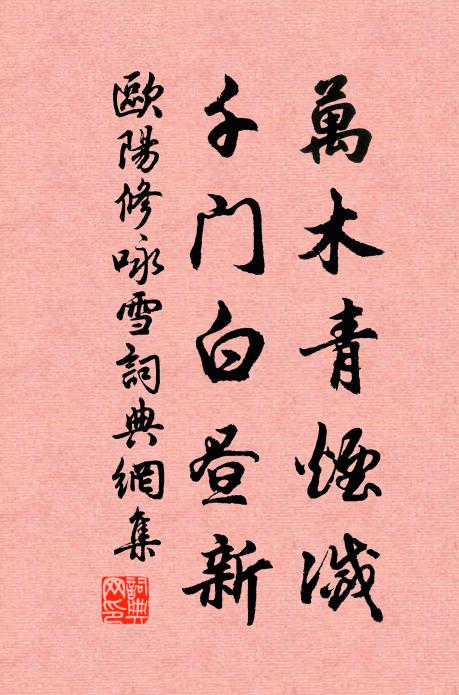 萬木青煙滅
千門白晝新
歐陽修咏雪詞典網集
詞典网印